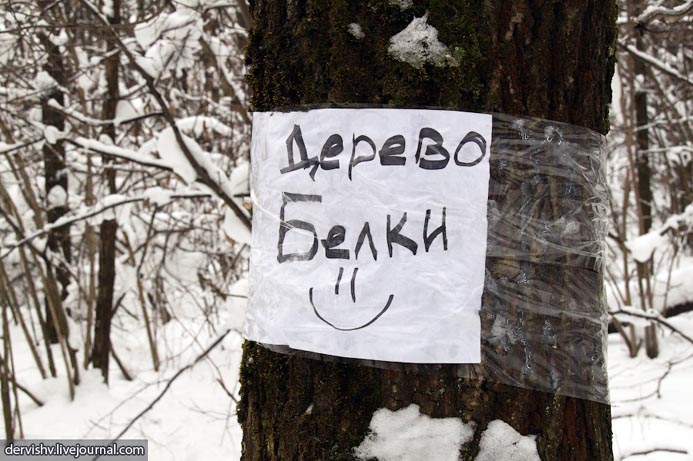 Дерево
Белки
dervishv.livejournal.com